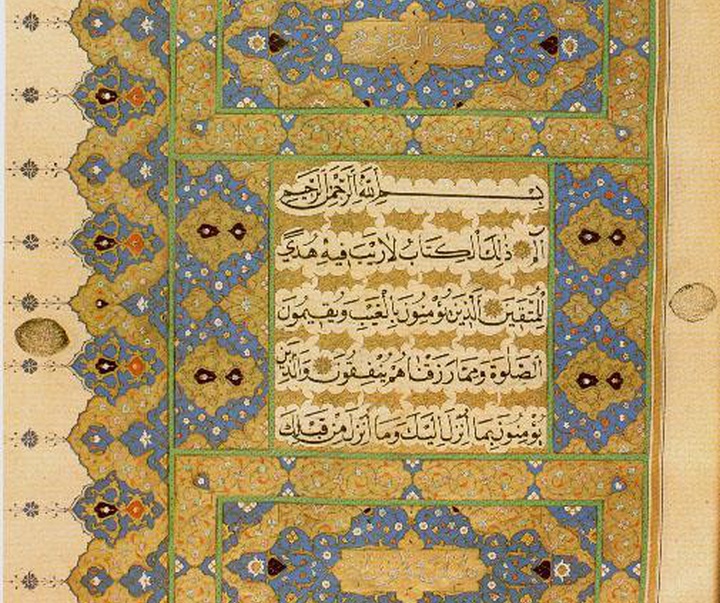 سورة البقرة
بِسْمِ اللَّهِ الرَّحْمَٰنِ الرَّحِيمِ
الٓمٓ ذَٰلِكَ الْكِتَابُ لَا رَيْبَ فِيهِ هُدًى
لِلْمُتَّقِينَ الَّذِينَ يُؤْمِنُونَ بِالْغَيْبِ وَيُقِيمُونَ
الصَّلٰوةَ وَمِمَّا رَزَقْنَاهُمْ يُنْفِقُونَ وَالَّذِينَ
يُؤْمِنُونَ بِمَا أُنْزِلَ إِلَيْكَ وَمَا أُنْزِلَ مِنْ قَبْلِكَ